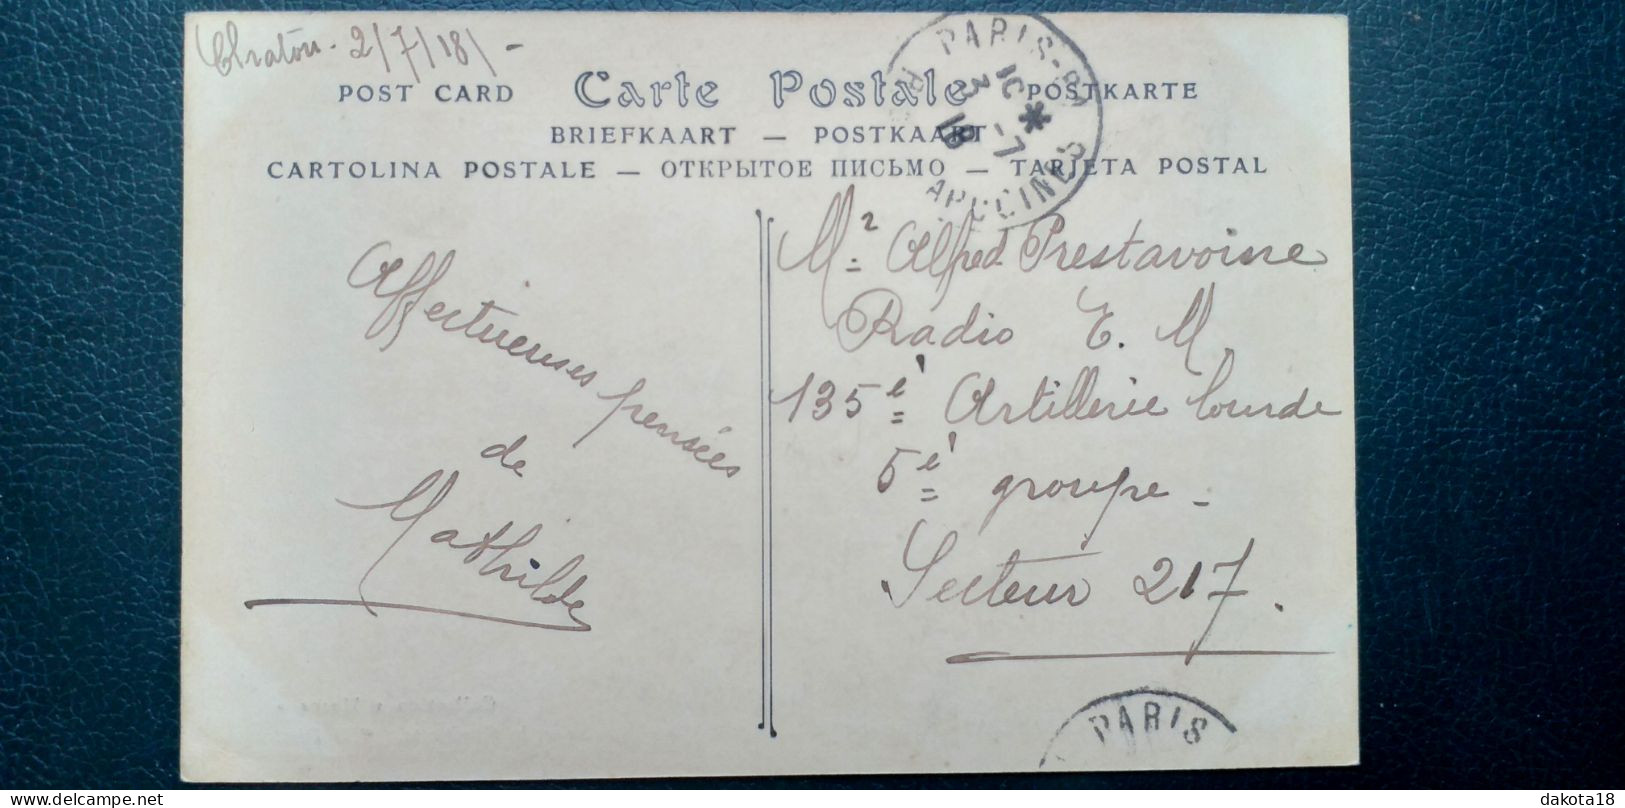 Chatou - 2/7/18/-
POST CARD Carte Postale POSTKARTE
BRIEFKAART — POSTKAART
CARTOLINA POSTALE — ОТКРЫТОЕ ПИСЬМО — TARJETA POSTAL
PARIS-
10 *
3 -7
18
APUCINES
Affectueuses pensées
de
Mathilde
Mr Alfred Prestavoine
Radio E. M
135è Artillerie lourde
5è groupe -
Secteur 217.
PARIS
delcampe.net
dakota18